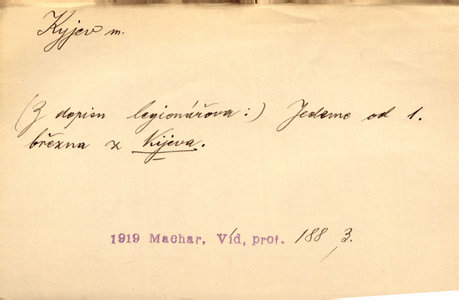 Kyjev m.
(Z dopisu legionářova:) Jedeme od 1.
března z Kijeva.
1919 Machar, Víd, prof. 188 3.